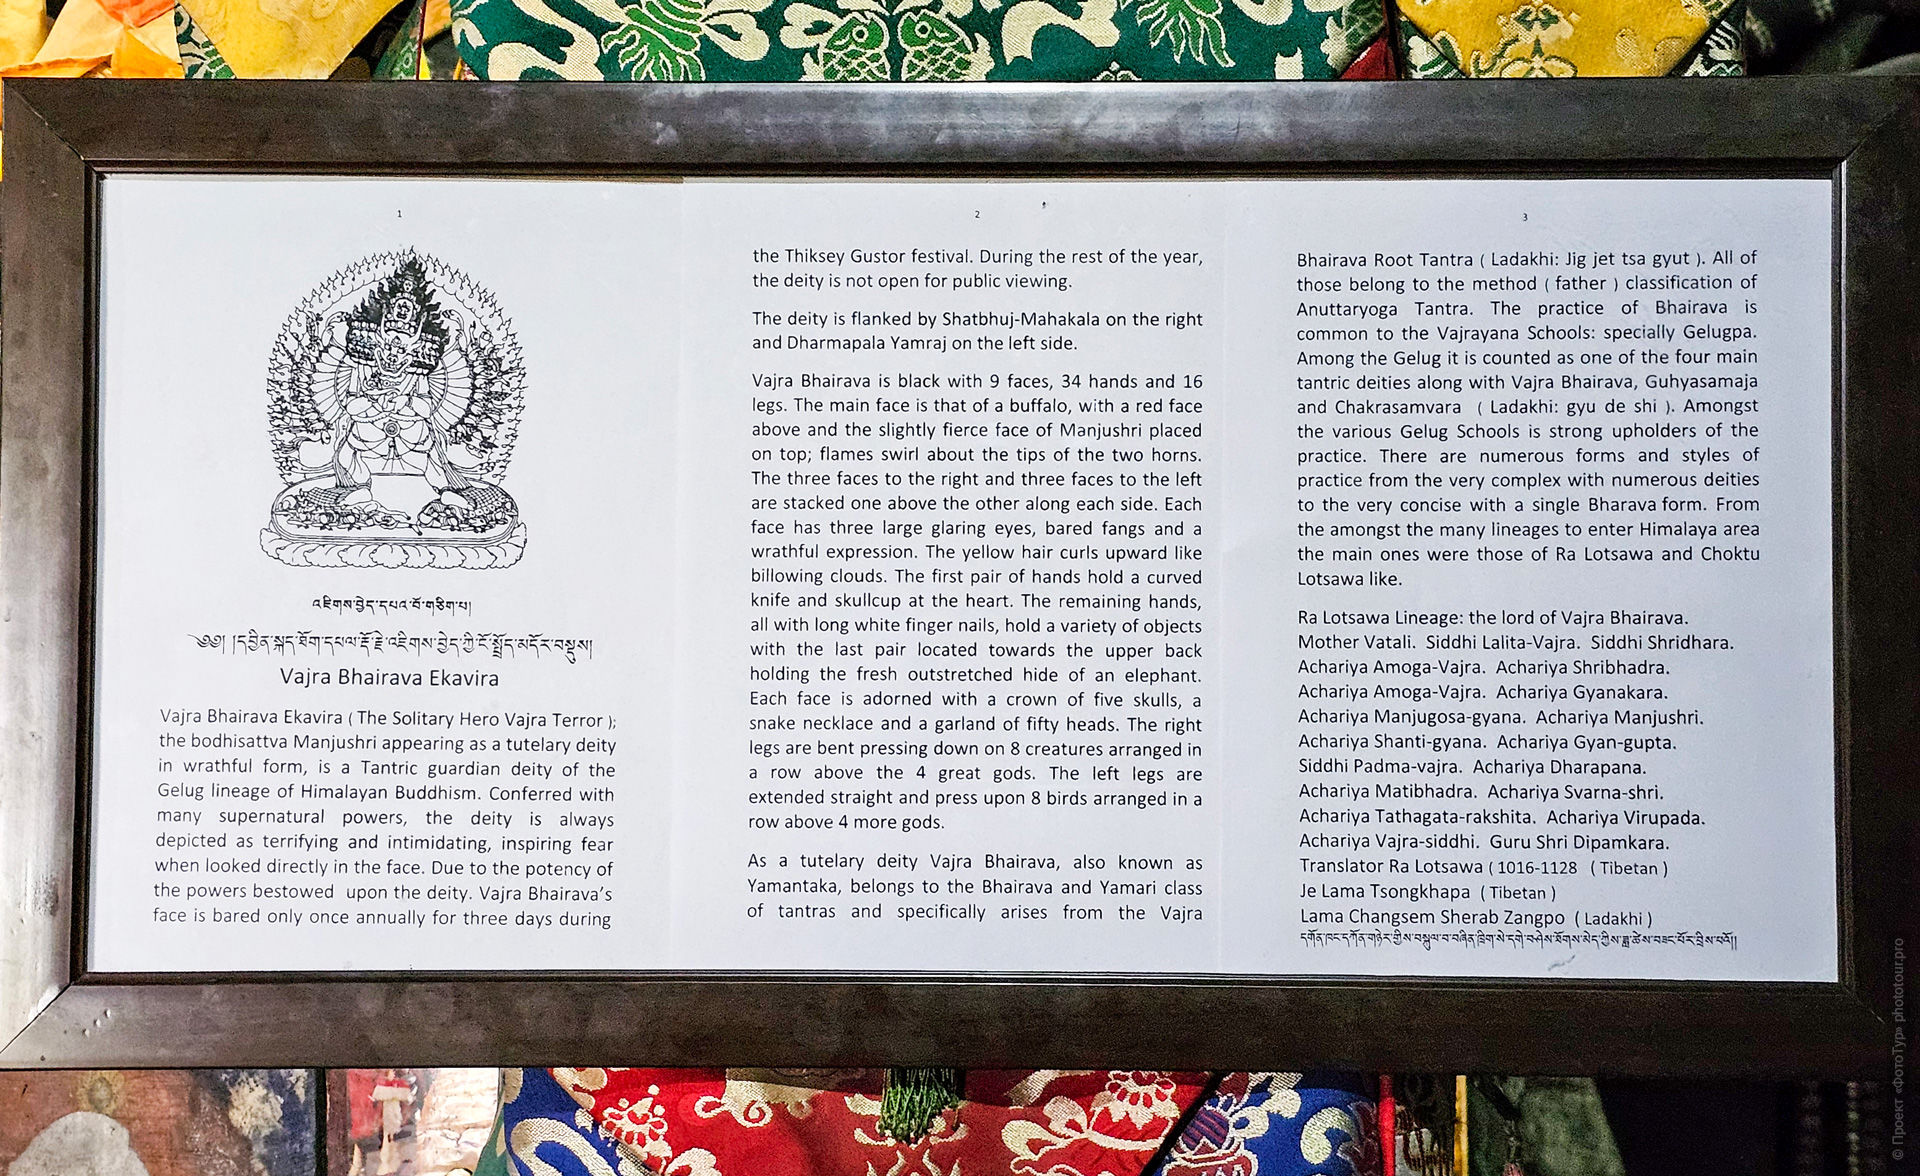 1
འཇིགས་བྱེད་དཔའ་བོ་གཅིག་པ།
༄༅། །དབྱིན་སྐད་ཐོག་དཔལ་རྡོ་རྗེ་འཇིགས་བྱེད་ཀྱི་ངོ་སྤྲོད་མདོར་བསྡུས།
Vajra Bhairava Ekavira
Vajra Bhairava Ekavira ( The Solitary Hero Vajra Terror );
the bodhisattva Manjushri appearing as a tutelary deity
in wrathful form, is a Tantric guardian deity of the
Gelug lineage of Himalayan Buddhism. Conferred with
many supernatural powers, the deity is always
depicted as terrifying and intimidating, inspiring fear
when looked directly in the face. Due to the potency of
the powers bestowed upon the deity. Vajra Bhairava's
face is bared only once annually for three days during
2
the Thiksey Gustor festival. During the rest of the year,
the deity is not open for public viewing.
The deity is flanked by Shatbhuj-Mahakala on the right
and Dharmapala Yamraj on the left side.
Vajra Bhairava is black with 9 faces, 34 hands and 16
legs. The main face is that of a buffalo, with a red face
above and the slightly fierce face of Manjushri placed
on top; flames swirl about the tips of the two horns.
The three faces to the right and three faces to the left
are stacked one above the other along each side. Each
face has three large glaring eyes, bared fangs and a
wrathful expression. The yellow hair curls upward like
billowing clouds. The first pair of hands hold a curved
knife and skullcup at the heart. The remaining hands,
all with long white finger nails, hold a variety of objects
with the last pair located towards the upper back
holding the fresh outstretched hide of an elephant.
Each face is adorned with a crown of five skulls, a
snake necklace and a garland of fifty heads. The right
legs are bent pressing down on 8 creatures arranged in
a row above the 4 great gods. The left legs are
extended straight and press upon 8 birds arranged in a
row above 4 more gods.
As a tutelary deity Vajra Bhairava, also known as
Yamantaka, belongs to the Bhairava and Yamari class
of tantras and specifically arises from the Vajra
3
Bhairava Root Tantra ( Ladakhi: Jig jet tsa gyut ). All of
those belong to the method ( father ) classification of
Anuttaryoga Tantra. The practice of Bhairava is
common to the Vajrayana Schools: specially Gelugpa.
Among the Gelug it is counted as one of the four main
tantric deities along with Vajra Bhairava, Guhyasamaja
and Chakrasamvara ( Ladakhi: gyu de shi ). Amongst
the various Gelug Schools is strong upholders of the
practice. There are numerous forms and styles of
practice from the very complex with numerous deities
to the very concise with a single Bharava form. From
the amongst the many lineages to enter Himalaya area
the main ones were those of Ra Lotsawa and Choktu
Lotsawa like.
Ra Lotsawa Lineage: the lord of Vajra Bhairava.
Mother Vatali. Siddhi Lalita-Vajra. Siddhi Shridhara.
Achariya Amoga-Vajra. Achariya Shribhadra.
Achariya Amoga-Vajra. Achariya Gyanakara.
Achariya Manjugosa-gyana. Achariya Manjushri.
Achariya Shanti-gyana. Achariya Gyan-gupta.
Siddhi Padma-vajra. Achariya Dharapana.
Achariya Matibhadra. Achariya Svarna-shri.
Achariya Tathagata-rakshita. Achariya Virupada.
Achariya Vajra-siddhi. Guru Shri Dipamkara.
Translator Ra Lotsawa ( 1016-1128 ( Tibetan )
Je Lama Tsongkhapa ( Tibetan )
Lama Changsem Sherab Zangpo ( Ladakhi )
© Проект «ФотоТур» phototour.pro